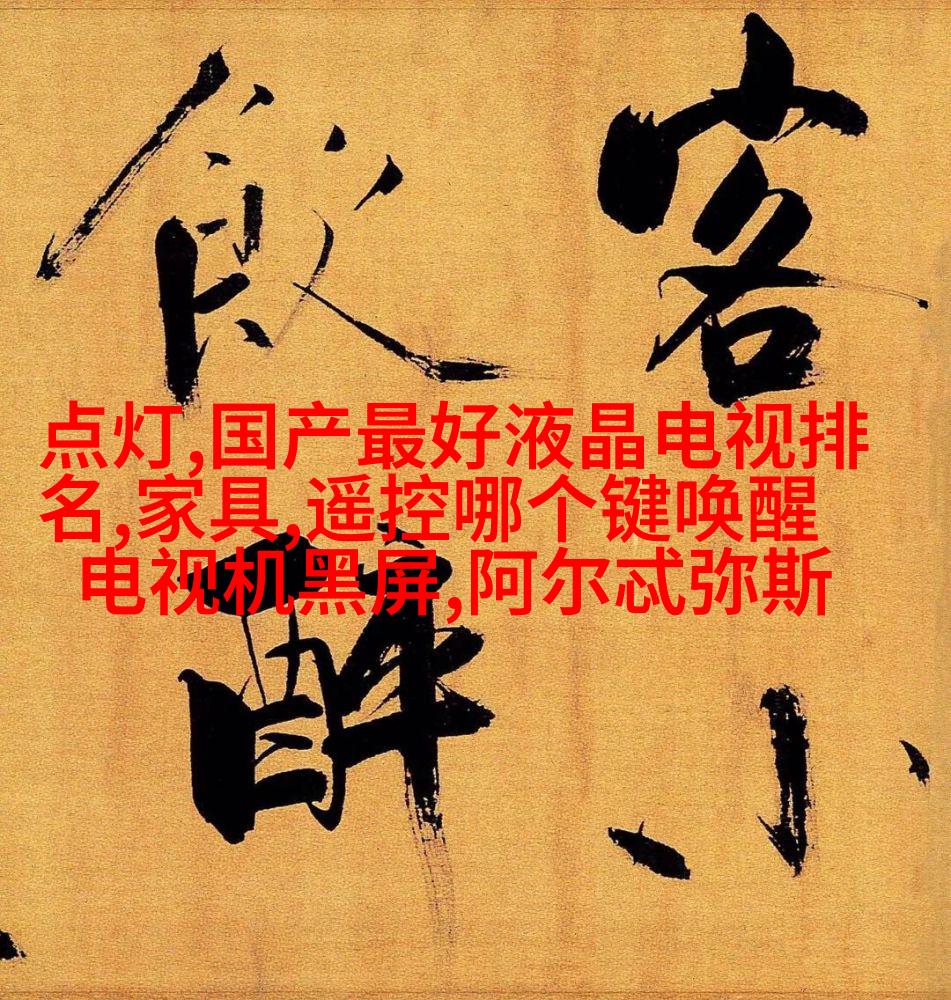 客小
飲醉
点灯,国产最好液晶电视排
名,家具,遥控哪个键唤醒
电视机黑屏,阿尔忒弥斯